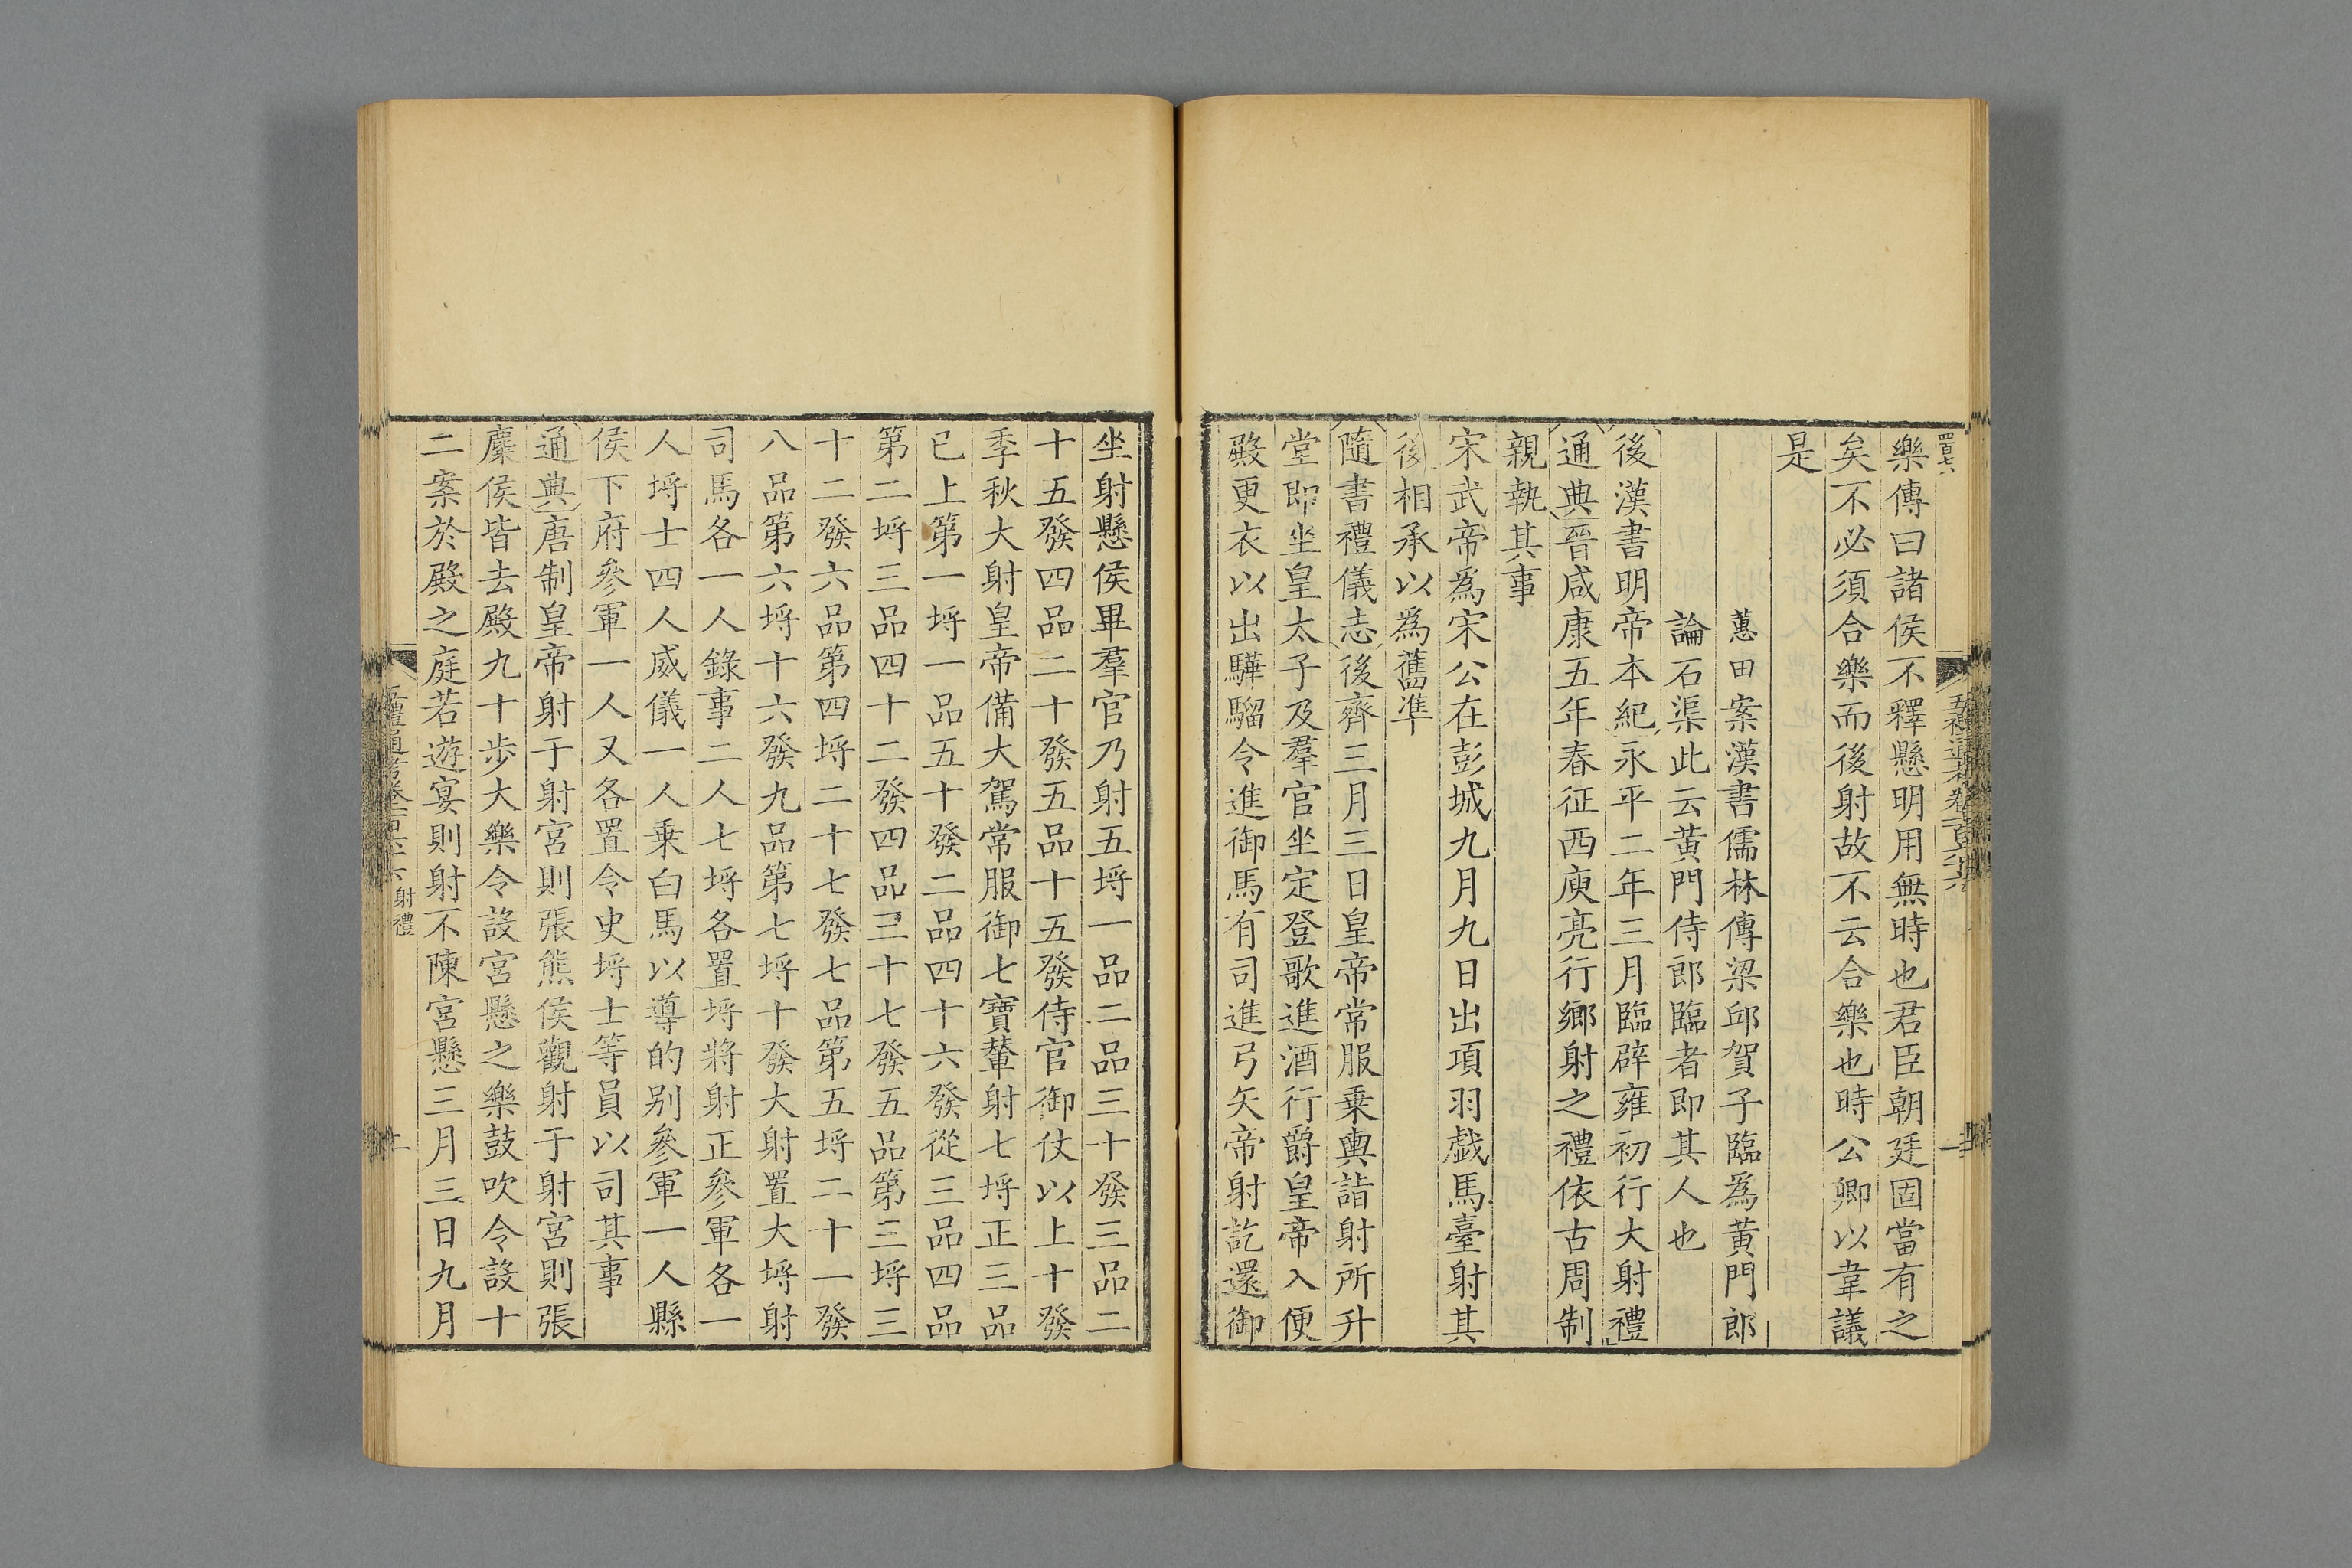 樂傳曰諸侯不釋懸明用無時也君臣朝廷固當有之
矣不必須合樂而後射故不云合樂也時公卿以韋議
是
蕙田案漢書儒林傳梁邱賀子臨為黃門郎
論石渠此云黃門侍郎臨者即其人也
後漢書明帝本紀永平二年三月臨辟雍初行大射禮
通典晉咸康五年春征西庾亮行鄉射之禮依古周制
親執其事
宋武帝為宋公在彭城九月九日出項羽戲馬臺射其
後相承以為舊準
隨書禮儀志後齊三月三日皇帝常服乗輿詣射所升
堂即坐皇太子及羣官坐定登歌進酒行爵皇帝入便
殿更衣以出驊騮令進御馬有司進弓矢帝射訖還御
坐射懸侯畢羣官乃射五埒一品二品三十發三品二
十五發四品二十發五品十五發侍官御仗以上十發
季秋大射皇帝備大駕常服御七寶輦射七埒正三品
已上第一埒一品五十發二品四十六發從三品四品
第二埒三品四十二發四品三十七發五品第三埒三
十二發六品第四埒二十七發七品第五埒二十一發
八品第六埒十六發九品第七埒十發大射置大埒射
司馬各一人錄事二人七埒各置埒將射正參軍各一
人埒士四人威儀一人乗白馬以導的别參軍一人縣
侯下府參軍一人又各置令史埒士等員以司其事
通典唐制皇帝射于射宮則張熊侯觀射于射宮則張
麋侯皆去殿九十步大樂令設宮懸之樂鼓吹令設十
二案於殿之庭若遊宴則射不陳宮懸三月三日九月
射禮